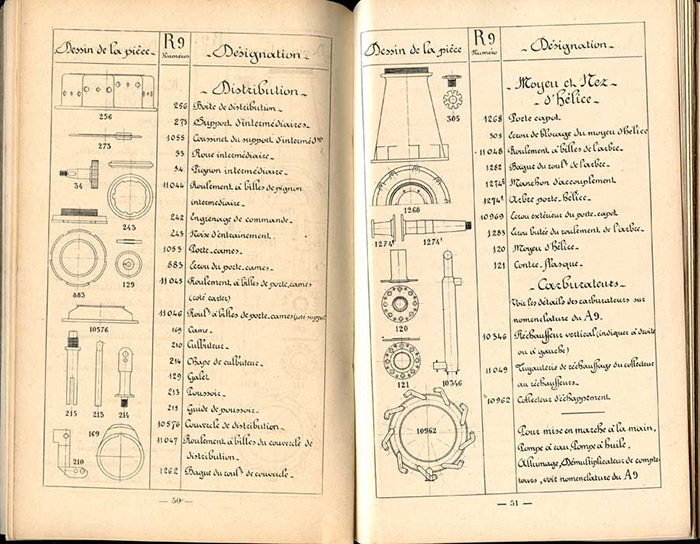 Dessin de la pièce
R9
Numéros
Désignation
Distribution
256 Boîte de distribution
273 Support d'intermédiaires
1055 Coussinet du support d'interméd
33 Roue intermédiaire
34 Pignon intermédiaire
11044 Roulement à billes de pignon
intermédiaire
242 Engrenage de commande
243 Noix d'entraînement
1053 Porte-cames
883 Ecrou du porte-cames
11045 Roulement à billes de porte-cames
(coté carter)
11046 Roult à billes de porte-cames (coté suppt)
169 Came
210 Culbuteur
214 Chape de culbuteur
129 Galet
213 Poussoir
215 Guide de poussoir
10576 Couvercle de distribution
11047 Roulement à billes du couvercle de
distribution
1262 Bague du roult de couvercle
256
273
34
243
883
129
10576
215
213
214
169
210
— 50 —
Dessin de la pièce
R9
Numéros
Désignation
Moyeu et Nez
d'hélice
1268 Porte capot
305 Ecrou de blocage du moyeu d'hélice
11048 Roulement à billes de l'arbre
1282 Bague du roult de l'arbre
1274² Manchon d'accouplement
1274¹ Arbre porte-hélice
10969 Ecrou extérieur du porte-capot
1283 Ecrou butée du roulement de l'arbre
120 Moyeu d'hélice
121 Contre-flasque
Carburateurs
Voir les détails des carburateurs sur
nomenclature du A9.
10346 Réchauffeur vertical (indiquer à droite
ou à gauche)
11049 Tuyauterie de réchauffage du collecteur
au réchauffeurs
10962 Collecteur d'échappement
Pour mise en marche à la main,
Pompe à eau, Pompe à huile,
Allumage, Démultiplicateur de compte-
tours, voir nomenclature du A9
305
1268
1274²
1274¹
120
121
10346
10962
— 51 —